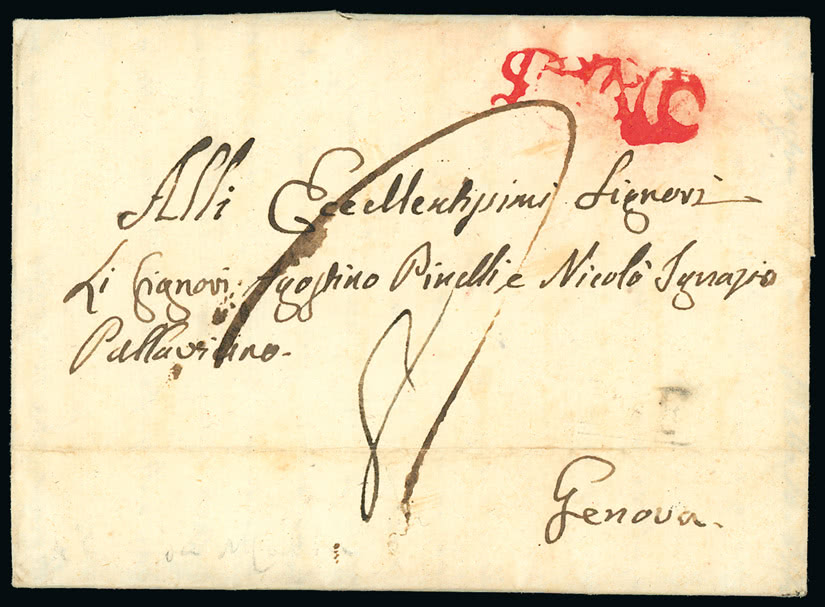 Alli Eccellentissimi Signori
Li Signori Agostino Pinelli e Nicolò Ignazio
Pallavicino.
Genova.